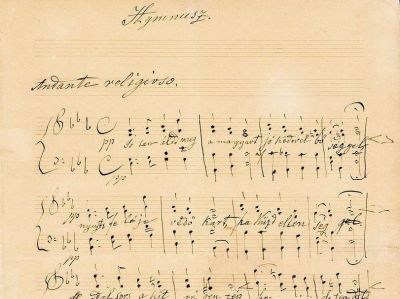 Hymnusz.
Andante religioso.
pp Isten áldd meg a magyart jó kedvel bő seggel
pp
pp nyujts feléje védő kart, ha küzd ellen seggel
Bal sors a kit